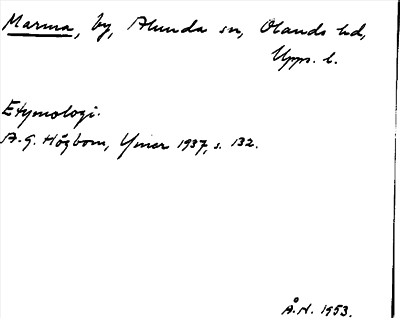 Marma, by, Alunda sn, Olands hd,
Upps. l.
Etymologi.
A. G. Högbom, Ymer 1937, s. 132.
Å. N. 1953.